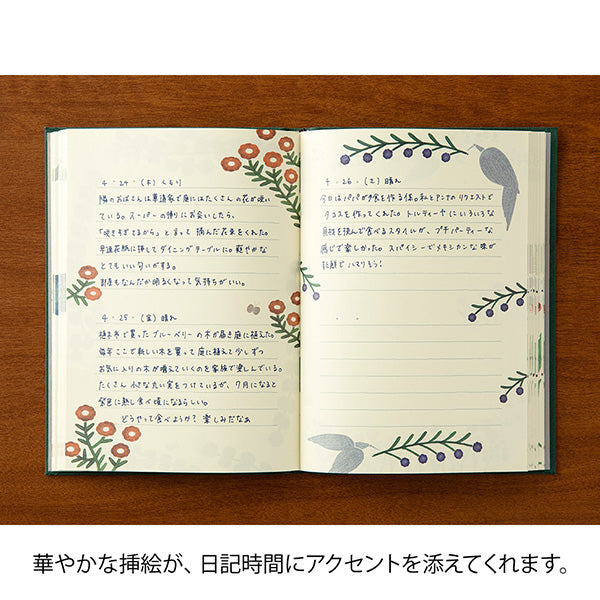 4・24・(木) くもり
隣のおばさんは華道家で庭にはたくさんの花が咲い
ている。スーパーの帰りにお会いしたら、
「咲きすぎてるから」と言って 摘んだ花束をくれた。
早速花瓶に挿してダイニングテーブルに。爽やかな
とてもいい匂いがする。
部屋もなんだか明るくなって気持ちがいい。
4・25・(金) 晴れ
植木市で買ったブルーベリーの木が届き庭に植えた。
毎年ここで新しい木を買って庭に植えと少しずつ
お気に入りの木が増えていくのを家族で楽しんでいる。
たくさん 小さな丸い実をつけているが、7月になると
紫色に熟し食べ頃になるらしい。
どうやって食べようか? 楽しみだなぁ
4・26・(土) 晴れ
今日はパパが夕食を作る係。私とアンナのリクエストで
タコスを作ってくれた。トルティーヤにいろいろな
具材を挟んで食べるスタイルが、プチパーティーな
感じで楽しかった。スパイシーでメキシカンな味が
新鮮でハマりそう!
華やかな挿絵が、日記時間にアクセントを添えてくれます。